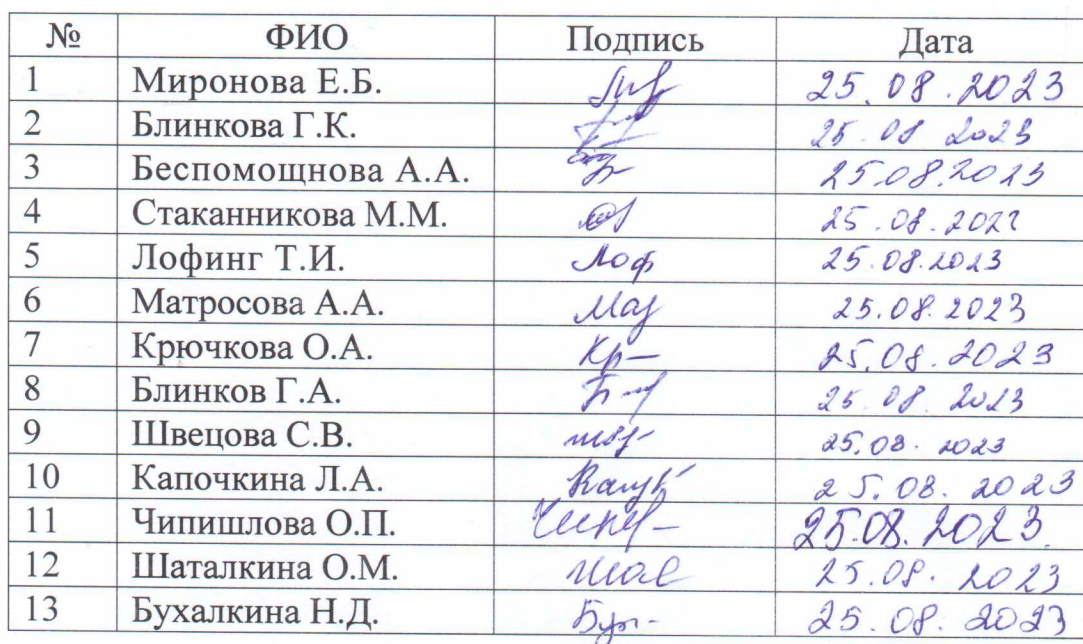 № ФИО Подпись Дата
1 Миронова Е.Б. 25.08.2023
2 Блинкова Г.К. 25.08 2023
3 Беспомощнова А.А. 25.08.2023
4 Стаканникова М.М. 25.08.2023
5 Лофинг Т.И. Лоф 25.08.2023
6 Матросова А.А. 25.08.2023
7 Крючкова О.А. Кр 25.08.2023
8 Блинков Г.А. 25.08.2023
9 Швецова С.В. 25.08.2023
10 Капочкина Л.А. 25.08.2023
11 Чипишлова О.П. 25.08.2023.
12 Шаталкина О.М. 25.08.2023
13 Бухалкина Н.Д. 25.08.2023